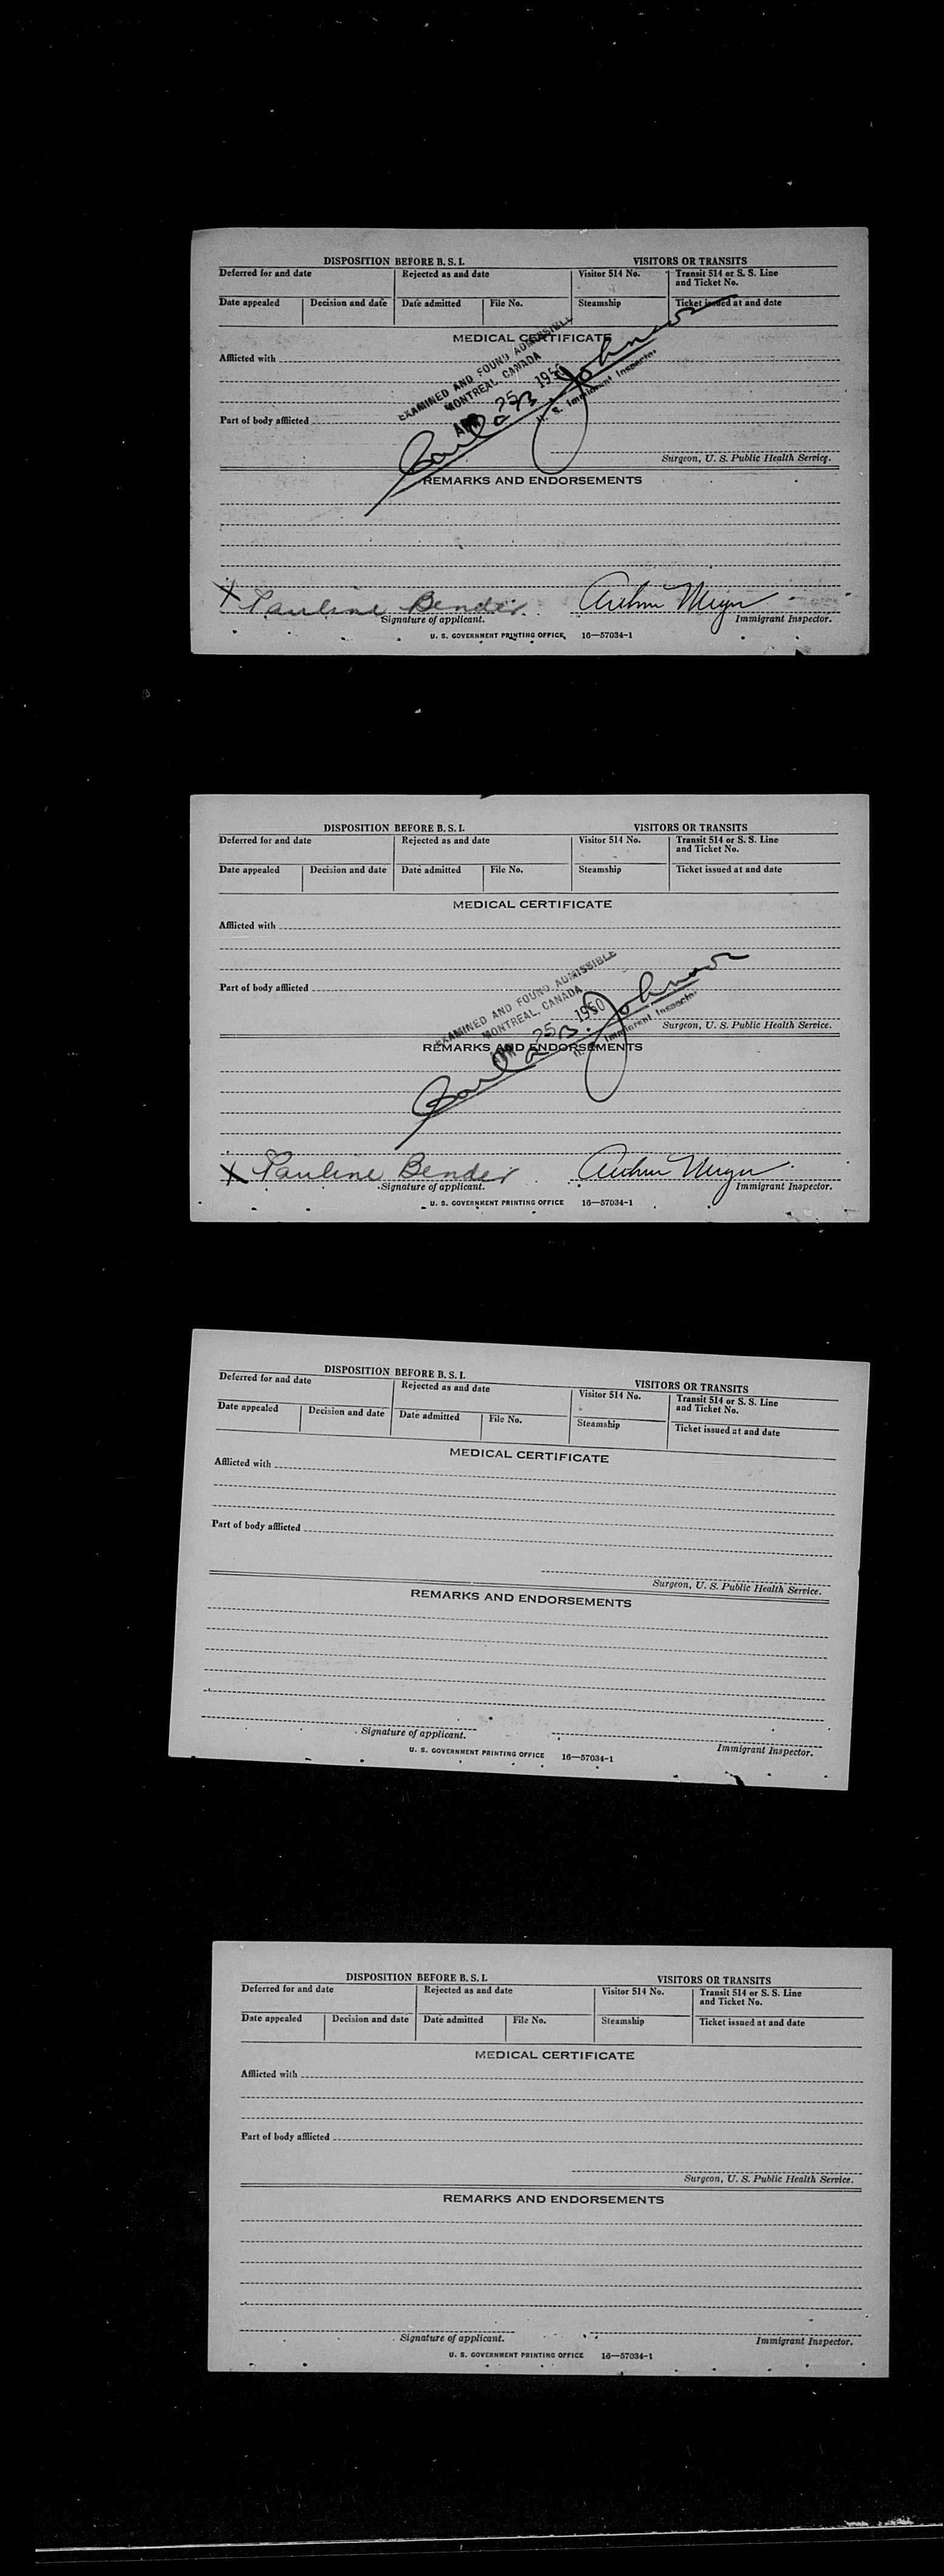 DISPOSITION BEFORE B. S. I. VISITORS OR TRANSITS
Deferred for and date Rejected as and date Visitor 514 No. Transit 514 or S. S. Line and Ticket No.
Date appealed Decision and date Date admitted File No. Steamship Ticket issued at and date
MEDICAL CERTIFICATE
Afflicted with
EXAMINED AND FOUND ADMISSIBLE
MONTREAL, CANADA
APR 25 1950
Carl B. Johnson
U. S. Immigrant Inspector
Part of body afflicted
Surgeon, U. S. Public Health Service.
REMARKS AND ENDORSEMENTS
X Pauline Bender Arthur Meyer
Signature of applicant. Immigrant Inspector.
U. S. GOVERNMENT PRINTING OFFICE 16—57034-1
DISPOSITION BEFORE B. S. I. VISITORS OR TRANSITS
Deferred for and date Rejected as and date Visitor 514 No. Transit 514 or S. S. Line and Ticket No.
Date appealed Decision and date Date admitted File No. Steamship Ticket issued at and date
MEDICAL CERTIFICATE
Afflicted with
Part of body afflicted
EXAMINED AND FOUND ADMISSIBLE
MONTREAL, CANADA
APR 25 1950
Carl B. Johnson
U. S. Immigrant Inspector
Surgeon, U. S. Public Health Service.
REMARKS AND ENDORSEMENTS
X Pauline Bender Arthur Meyer
Signature of applicant. Immigrant Inspector.
U. S. GOVERNMENT PRINTING OFFICE 16—57034-1
DISPOSITION BEFORE B. S. I. VISITORS OR TRANSITS
Deferred for and date Rejected as and date Visitor 514 No. Transit 514 or S. S. Line and Ticket No.
Date appealed Decision and date Date admitted File No. Steamship Ticket issued at and date
MEDICAL CERTIFICATE
Afflicted with
Part of body afflicted
Surgeon, U. S. Public Health Service.
REMARKS AND ENDORSEMENTS
Signature of applicant. Immigrant Inspector.
U. S. GOVERNMENT PRINTING OFFICE 16—57034-1
DISPOSITION BEFORE B. S. I. VISITORS OR TRANSITS
Deferred for and date Rejected as and date Visitor 514 No. Transit 514 or S. S. Line and Ticket No.
Date appealed Decision and date Date admitted File No. Steamship Ticket issued at and date
MEDICAL CERTIFICATE
Afflicted with
Part of body afflicted
Surgeon, U. S. Public Health Service.
REMARKS AND ENDORSEMENTS
Signature of applicant. Immigrant Inspector.
U. S. GOVERNMENT PRINTING OFFICE 16—57034-1